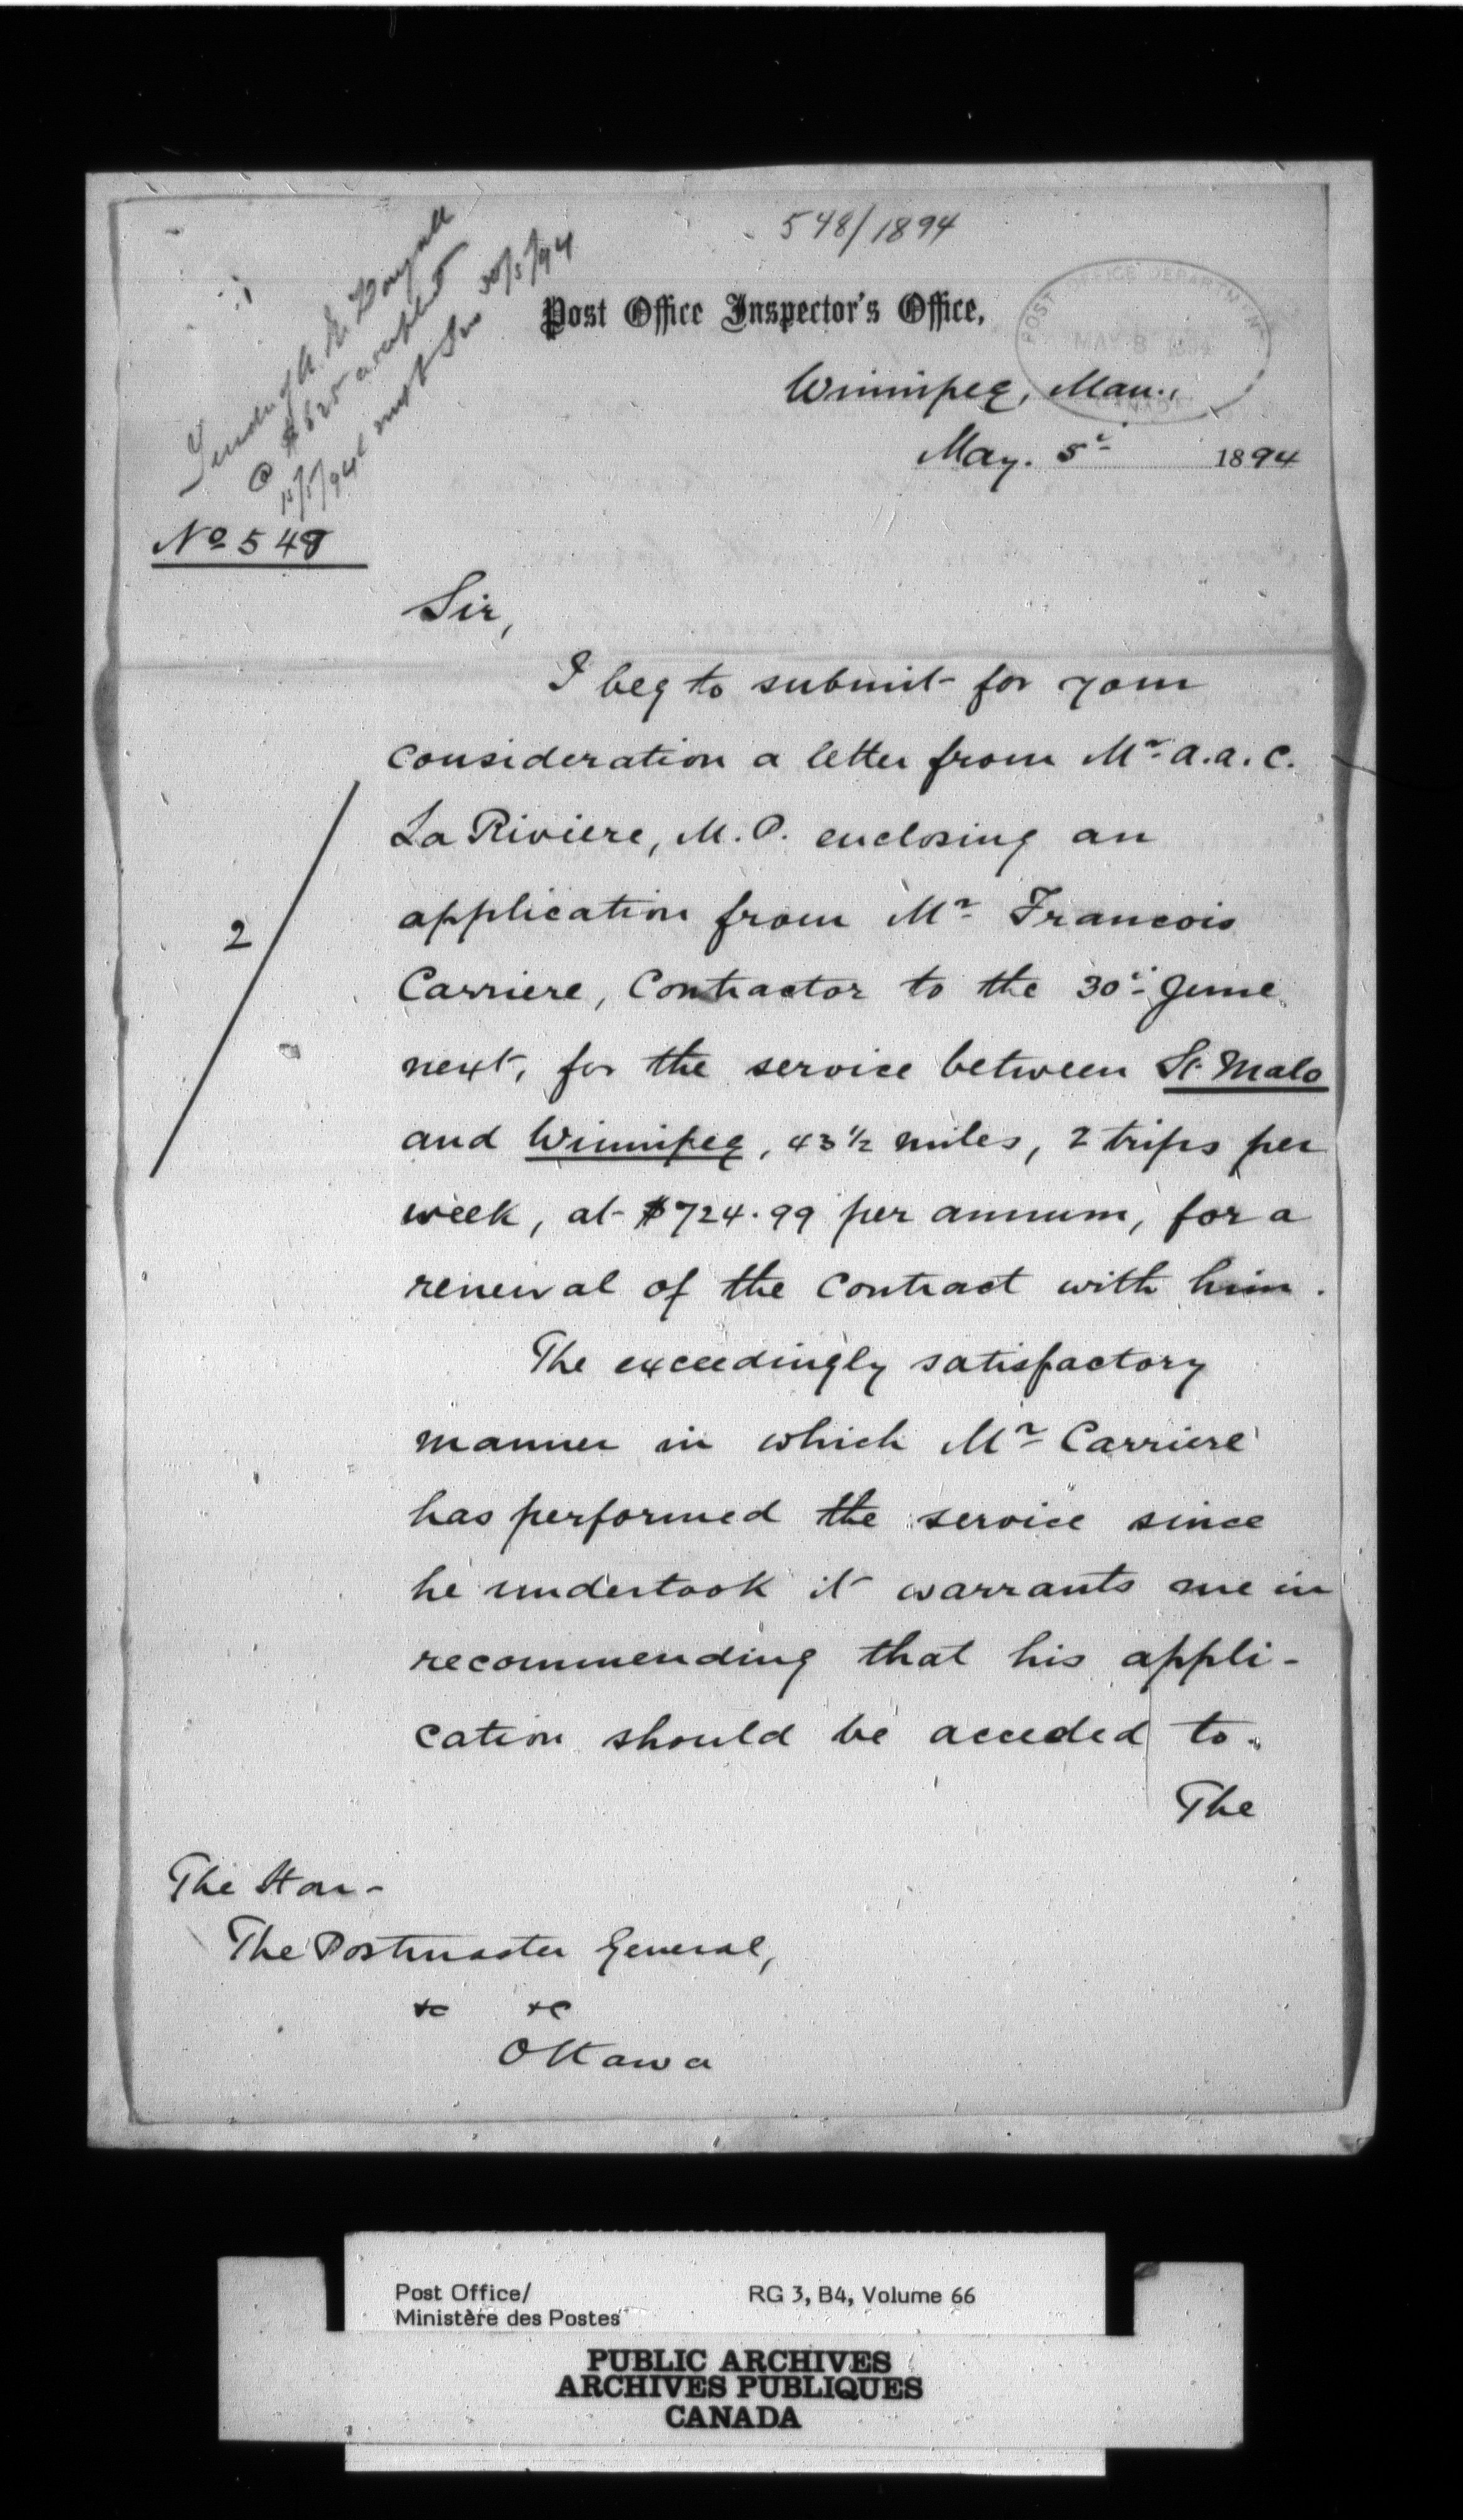 548/1894
Post Office Inspector's Office,
POST OFFICE DEPARTMENT
MAY 8 1894
CANADA
Winnipeg, Man.,
May. 5th 1894
@ $625 accepted
15/5/94
30/5/94
No 548
Sir,
I beg to submit for your
consideration a letter from Mr A.A.C.
La Riviere, M.P. enclosing an
application from Mr Francois
Carriere, Contractor to the 30th June
next, for the service between St. Malo
and Winnipeg, 43½ miles, 2 trips per
week, at $724.99 per annum, for a
renewal of the contract with him.
2
The exceedingly satisfactory
manner in which Mr Carriere
has performed the service since
he undertook it warrants me in
recommending that his appli-
cation should be acceded to.
The
The Hon-
The Postmaster General,
&c &c
Ottawa
Post Office/
Ministère des Postes
RG 3, B4, Volume 66
PUBLIC ARCHIVES
ARCHIVES PUBLIQUES
CANADA